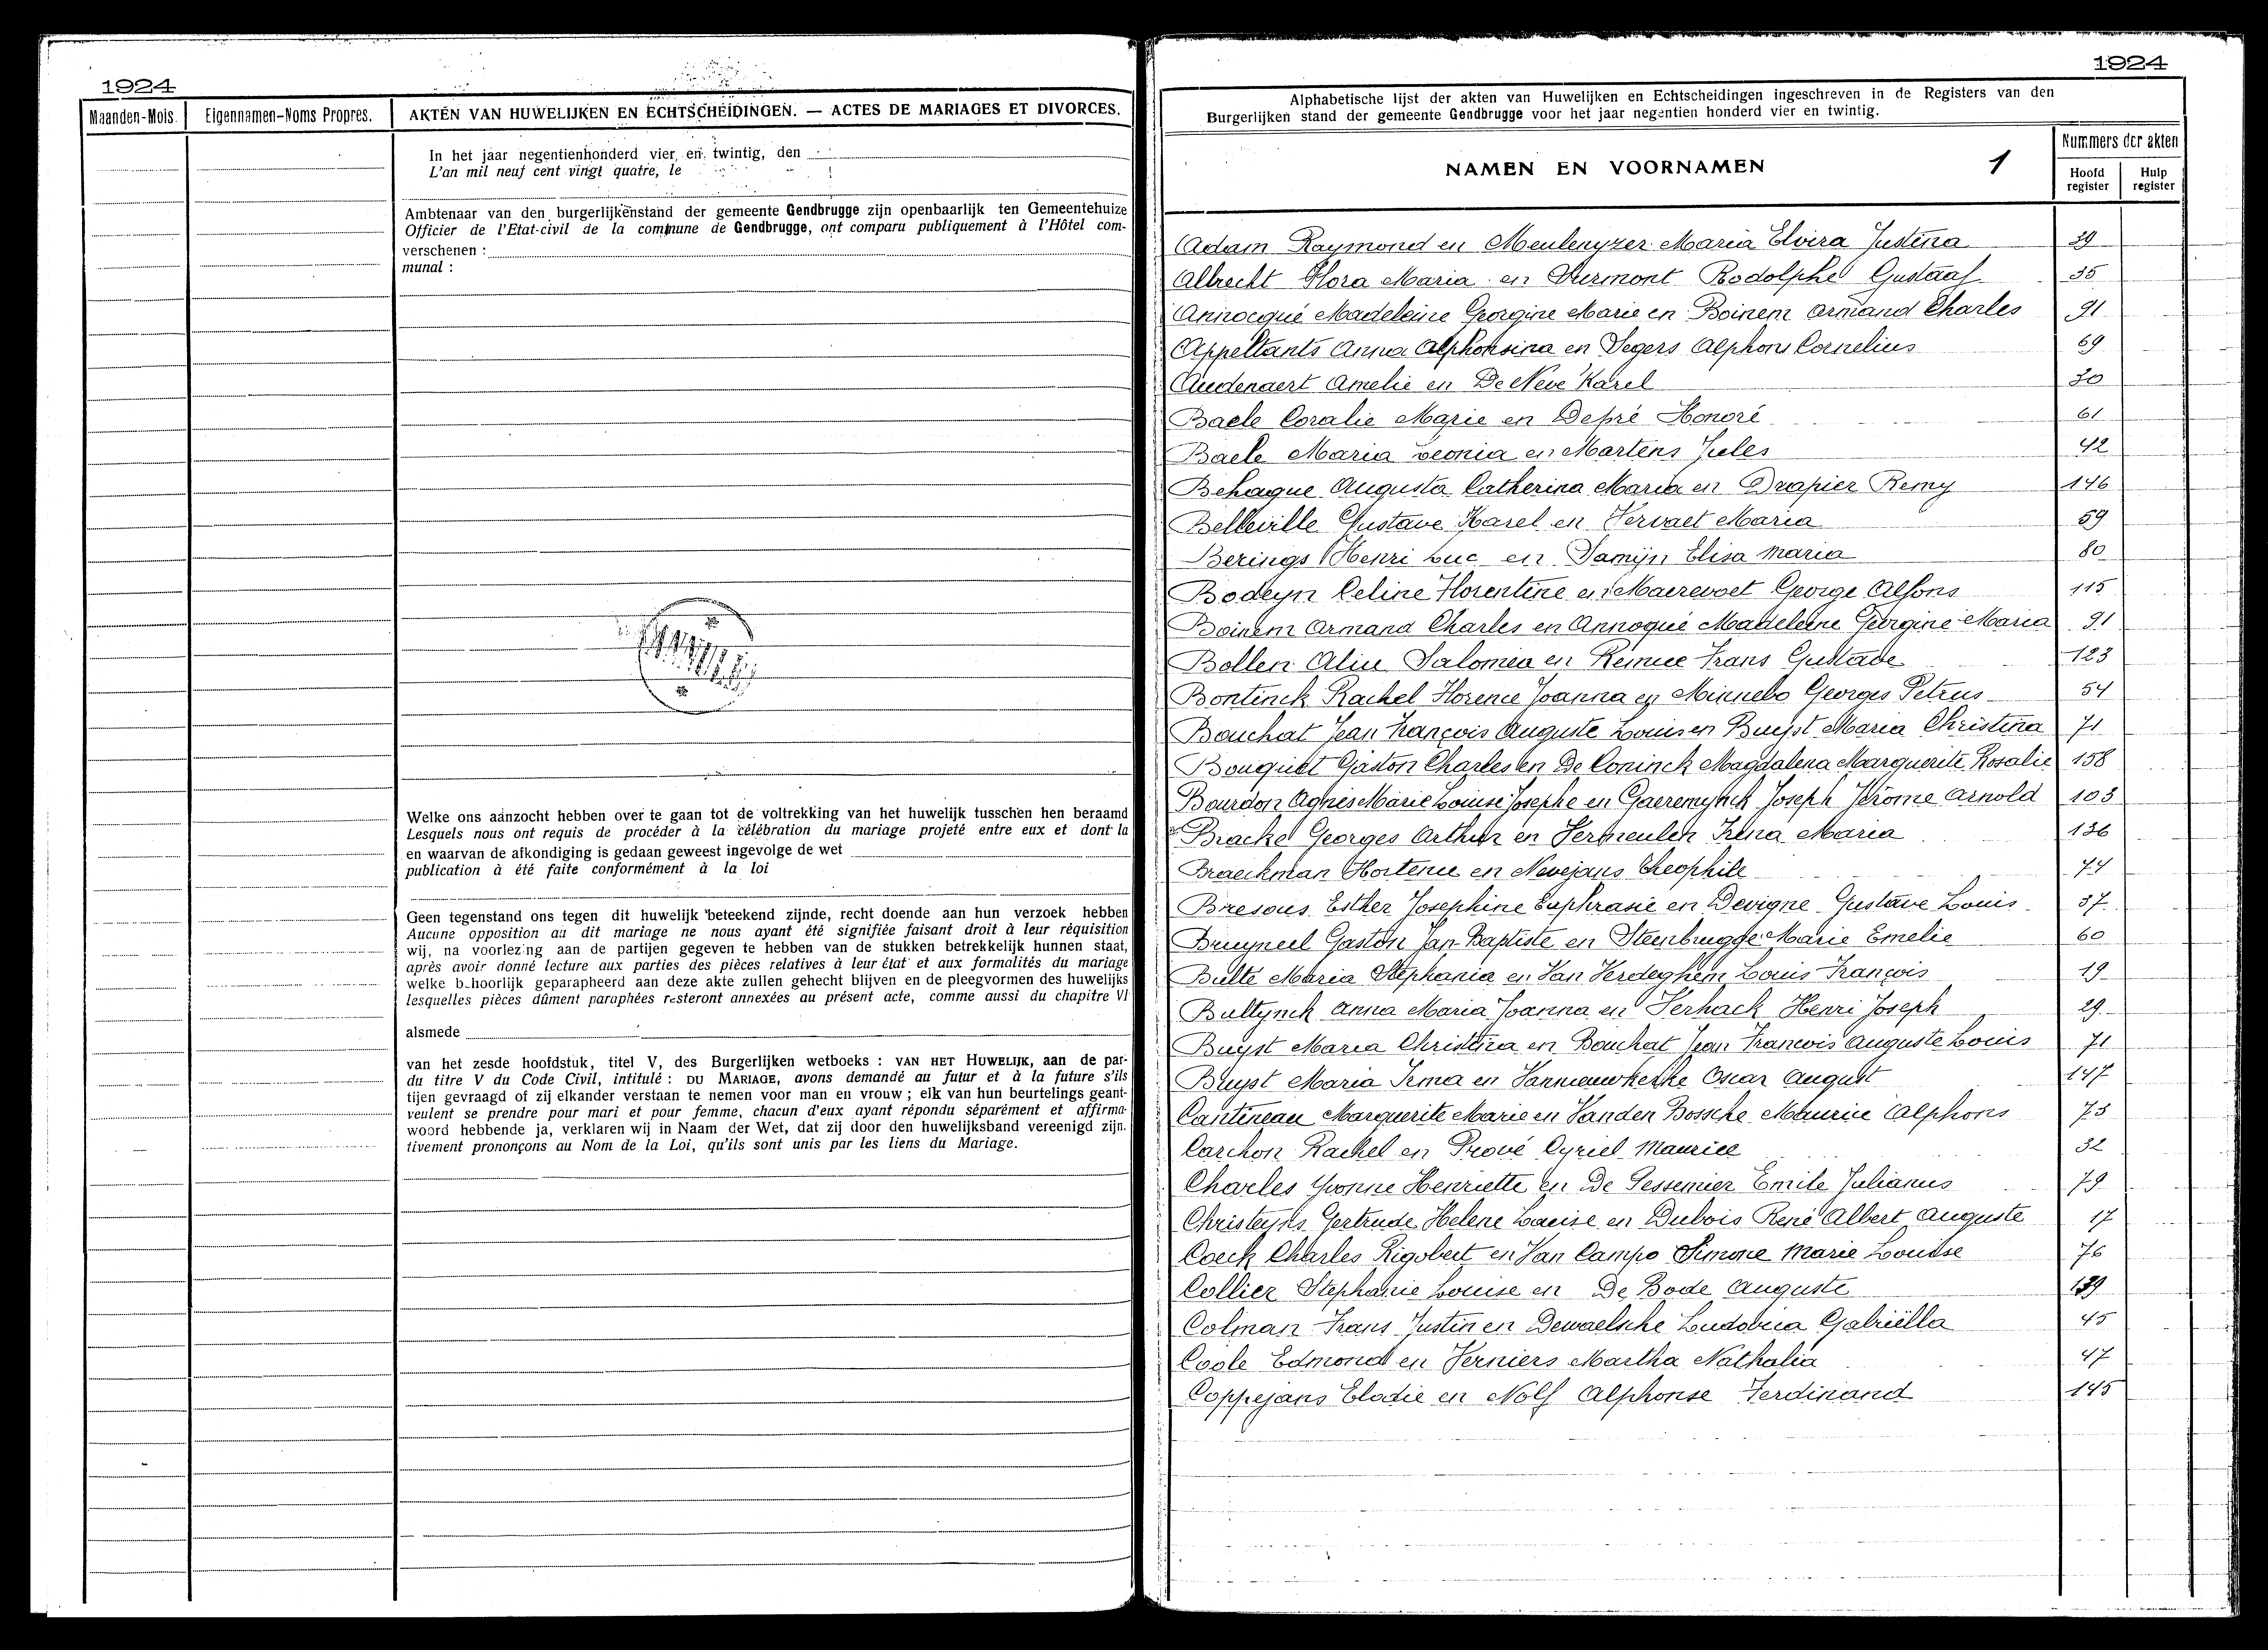 1924
Maanden-Mois.
Eigennamen-Noms Propres.
AKTEN VAN HUWELIJKEN EN ECHTSCHEIDINGEN. — ACTES DE MARIAGES ET DIVORCES.
In het jaar negentienhonderd vier en twintig, den
L'an mil neuf cent vingt quatre, le
Ambtenaar van den burgerlijkenstand der gemeente Gendbrugge zijn openbaarlijk ten Gemeentehuize
Officier de l'Etat-civil de la commune de Gendbrugge, ont comparu publiquement à l'Hôtel com-
verschenen :
munal :
Welke ons aanzocht hebben over te gaan tot de voltrekking van het huwelijk tusschen hen beraamd
Lesquels nous ont requis de procéder à la célébration du mariage projeté entre eux et dont la
en waarvan de afkondiging is gedaan geweest ingevolge de wet
publication à été faite conformément à la loi
Geen tegenstand ons tegen dit huwelijk beteekend zijnde, recht doende aan hun verzoek hebben
Aucune opposition au dit mariage ne nous ayant été signifiée faisant droit à leur réquisition
wij, na voorlezing aan de partijen gegeven te hebben van de stukken betrekkelijk hunnen staat,
après avoir donné lecture aux parties des pièces relatives à leur état et aux formalités du mariage
welke behoorlijk geparapheerd aan deze akte zullen gehecht blijven en de pleegvormen des huwelijks
lesquelles pièces dûment paraphées resteront annexées au présent acte, comme aussi du chapitre VI
alsmede
van het zesde hoofdstuk, titel V, des Burgerlijken wetboeks : VAN HET HUWELIJK, aan de par-
du titre V du Code Civil, intitulé : DU MARIAGE, avons demandé au futur et à la future s'ils
tijen gevraagd of zij elkander verstaan te nemen voor man en vrouw ; elk van hun beurtelings geant-
veulent se prendre pour mari et pour femme, chacun d'eux ayant répondu séparément et affirma-
woord hebbende ja, verklaren wij in Naam der Wet, dat zij door den huwelijksband vereenigd zijn.
tivement prononçons au Nom de la Loi, qu'ils sont unis par les liens du Mariage.
1924
Alphabetische lijst der akten van Huwelijken en Echtscheidingen ingeschreven in de Registers van den
Burgerlijken stand der gemeente Gendbrugge voor het jaar negentien honderd vier en twintig.
NAMEN EN VOORNAMEN 1
Nummers der akten
Hoofd register
Hulp register
Adam Raymond en Meulenyzer Maria Elvira Justina 39
Albrecht Flora Maria en Surmont Rodolphe Gustaaf 35
Annocqué Madeleine Georgine Marie en Boinem Armand Charles 91
Appeltants Anna Alphonsina en Segers Alphons Cornelius 69
Audenaert Amelie en De Neve Karel 30
Baele Coralie Marie en Depré Honoré 61
Baele Maria Leonia en Martens Jules 42
Behaque Augusta Catherina Maria en Drapier Remy 146
Belleville Gustave Karel en Vervaet Maria 59
Berings Henri Luc en Damijn Elisa Maria 80
Bodeyn Celine Florentine en Maerevoet George Alfons 115
Boinem Armand Charles en Annoqué Madeleine Georgine Maria 91
Bollen Alice Salomea en Remue Frans Gustave 123
Bontinck Rachel Florence Joanna en Minnebo Georges Petrus 54
Bouchat Jean François Auguste Louis en Buyst Maria Christina 71
Bouquet Gaston Charles en De Coninck Magdalena Marguerite Rosalie 158
Bourdon Agnes Marie Louise Josephe en Gaeremynck Joseph Jérome Arnold 103
Bracke Georges Arthur en Vermeulen Irena Maria 136
Braeckman Hortence en Nevejans Theophile 74
Bresous Esther Josephine Euphrasie en Devigne Gustave Louis 37
Bruyneel Gaston Jan Baptiste en Steenbrugge Marie Emelie 60
Bulté Maria Stephania en Van Verdeghem Louis François 19
Bultynck Anna Maria Joanna en Verhack Henri Joseph 29
Buyst Maria Christina en Bouchat Jean Francois Auguste Louis 71
Buyst Maria Irma en Vannieuwkerke Oscar August 147
Cantineau Marguerite Marie en Vanden Bossche Maurice Alphons 73
Carchon Rachel en Prové Cyriel Maurice 32
Charles Yvonne Henriette en De Gessemier Emile Julianus 79
Christeyns Gertrude Helene Louise en Dubois René Albert Auguste 17
Coeck Charles Rigobert en Van Campo Simone Marie Louise 76
Collier Stephanie Louise en De Bode Auguste 139
Colman Frans Justin en Dewaelsche Ludovica Gabriëlla 45
Coole Edmond en Verniers Martha Nathalia 47
Coppejans Elodie en Nolf Alphonse Ferdinand 145